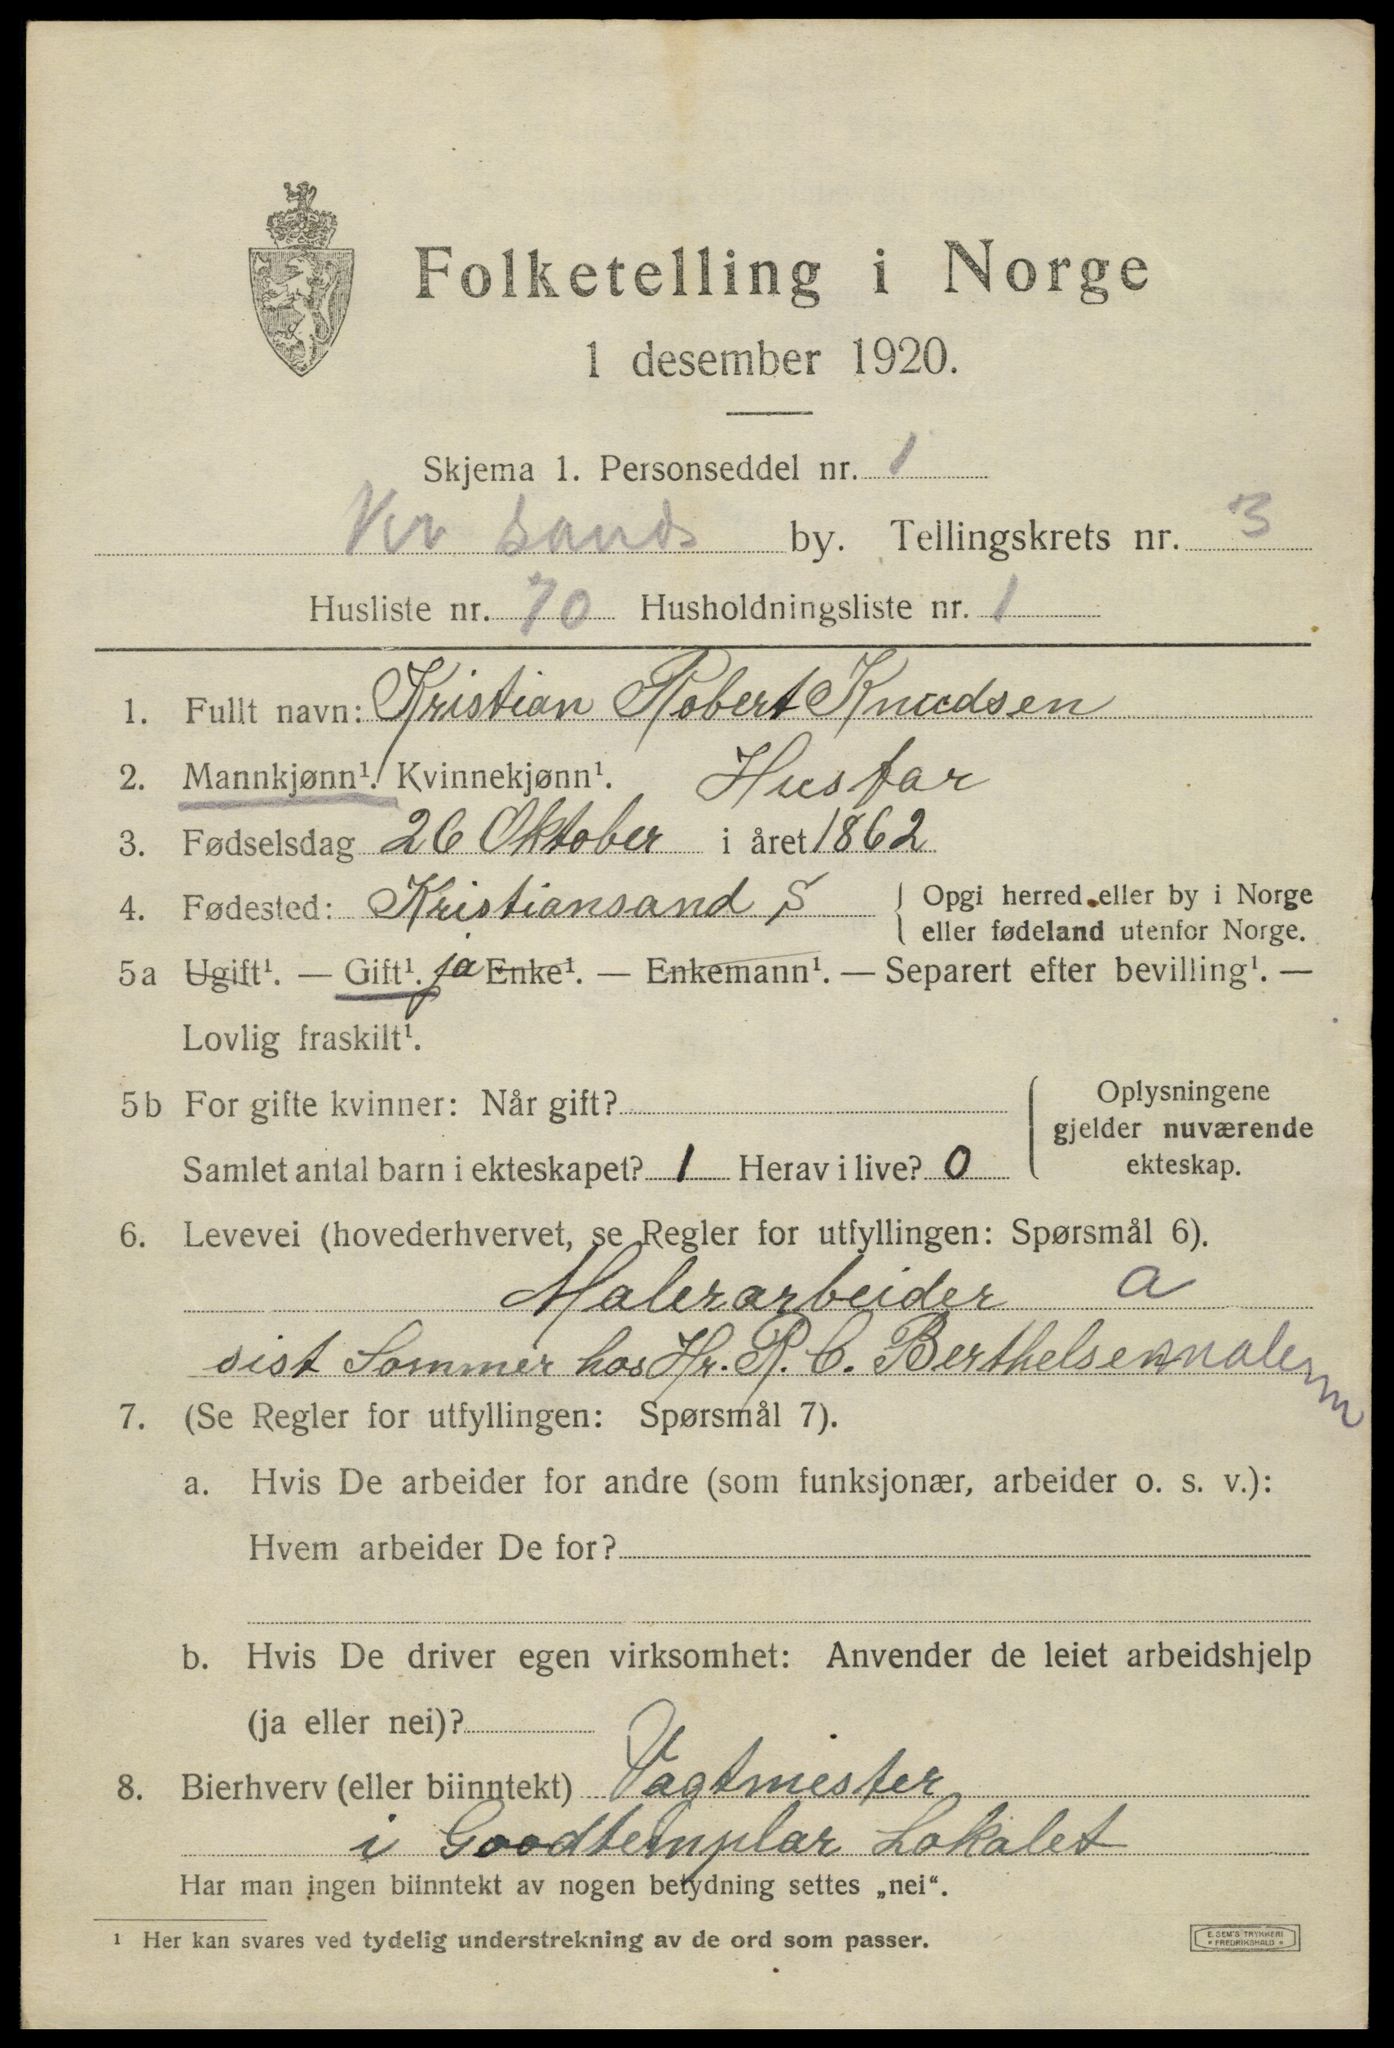 Folketelling i Norge
1 desember 1920.
Skjema 1. Personseddel nr. 1
Kr sands by. Tellingskrets nr. 3
Husliste nr. 70 Husholdningsliste nr. 1
1. Fullt navn: Kristian Robert Knudsen
2. Mannkjønn¹. Kvinnekjønn¹. Husfar
3. Fødselsdag 26 Oktober i året 1862
4. Fødested: Kristiansand S { Opgi herred eller by i Norge
eller fødeland utenfor Norge.
5a Ugift¹. — Gift¹. ja Enke¹. — Enkemann¹. — Separert efter bevilling¹. —
Lovlig fraskilt¹.
5b For gifte kvinner: Når gift?
Samlet antal barn i ekteskapet? 1 Herav i live? 0
Oplysningene
gjelder nuværende
ekteskap.
6. Levevei (hovederhvervet, se Regler for utfyllingen: Spørsmål 6).
Malerarbeider a
sist Sommer hos Hr. R. C. Berthelsen malerm
7. (Se Regler for utfyllingen: Spørsmål 7).
a. Hvis De arbeider for andre (som funksjonær, arbeider o. s. v.):
Hvem arbeider De for?
b. Hvis De driver egen virksomhet: Anvender de leiet arbeidshjelp
(ja eller nei)?
8. Bierhverv (eller biinntekt) Vagtmester
i Goodtemplar Lokalet
Har man ingen biinntekt av nogen betydning settes „nei“.
¹ Her kan svares ved tydelig understrekning av de ord som passer.
E. SEM'S TRYKKERI
* FREDRIKSHALD *